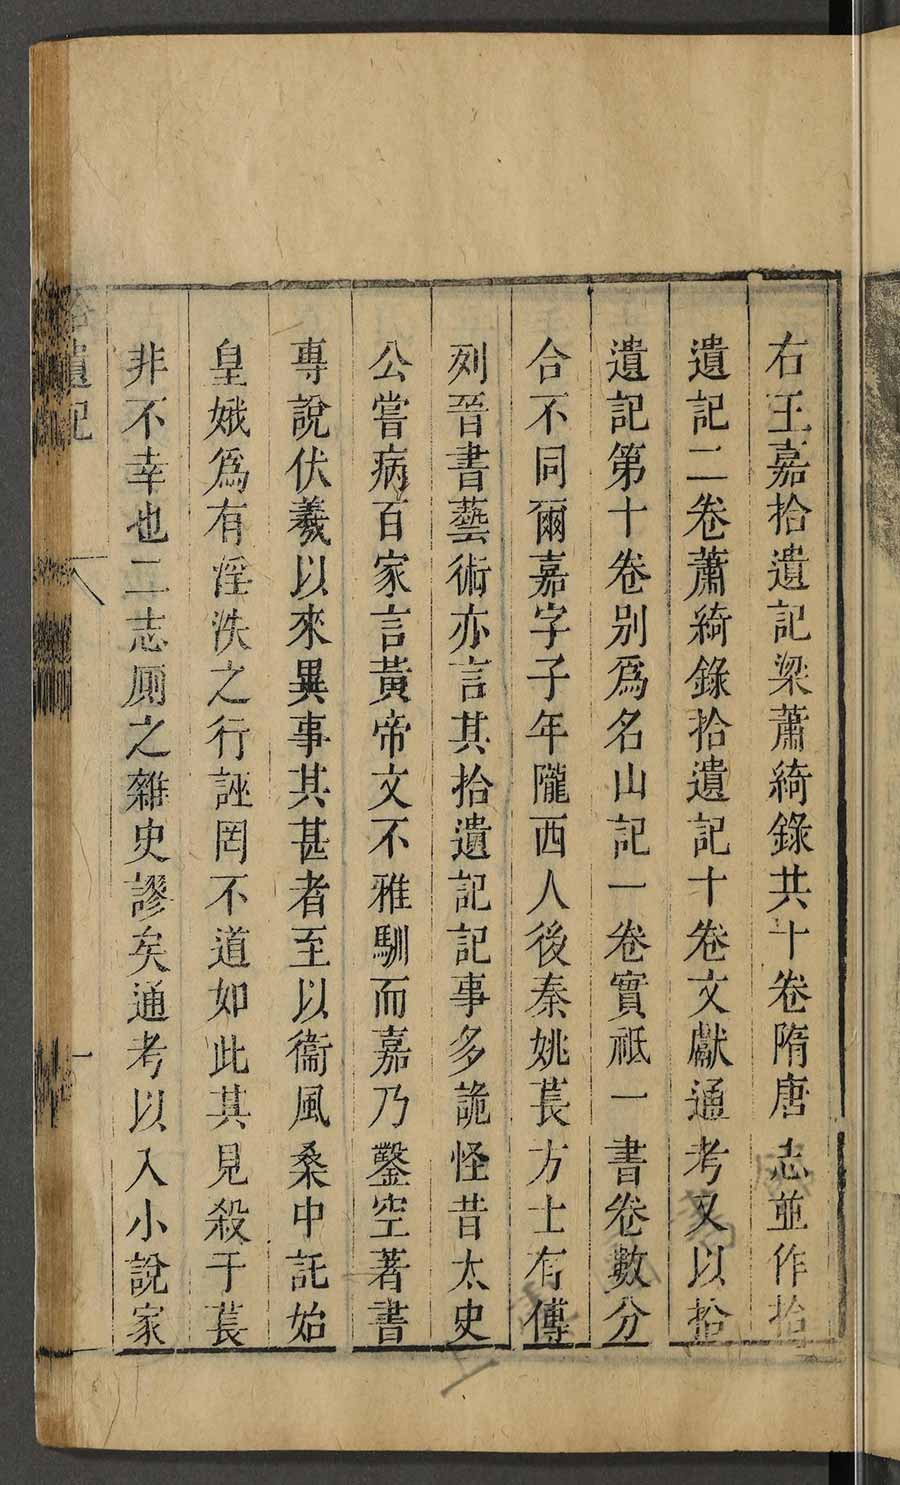 右王嘉拾遺記梁蕭綺錄共十卷隋唐志並作拾
遺記二卷蕭綺錄拾遺記十卷文獻通考又以拾
遺記第十卷别爲名山記一卷實祗一書卷數分
合不同爾嘉字子年隴西人後秦姚萇方士有傳
列晉書藝術亦言其拾遺記記事多詭怪昔太史
公嘗病百家言黃帝文不雅馴而嘉乃鑿空著書
專說伏羲以來異事其甚者至以衞風桑中託始
皇娥爲有淫泆之行誣罔不道如此其見殺于萇
非不幸也二志厠之雜史謬矣通考以入小說家
拾遺記
一